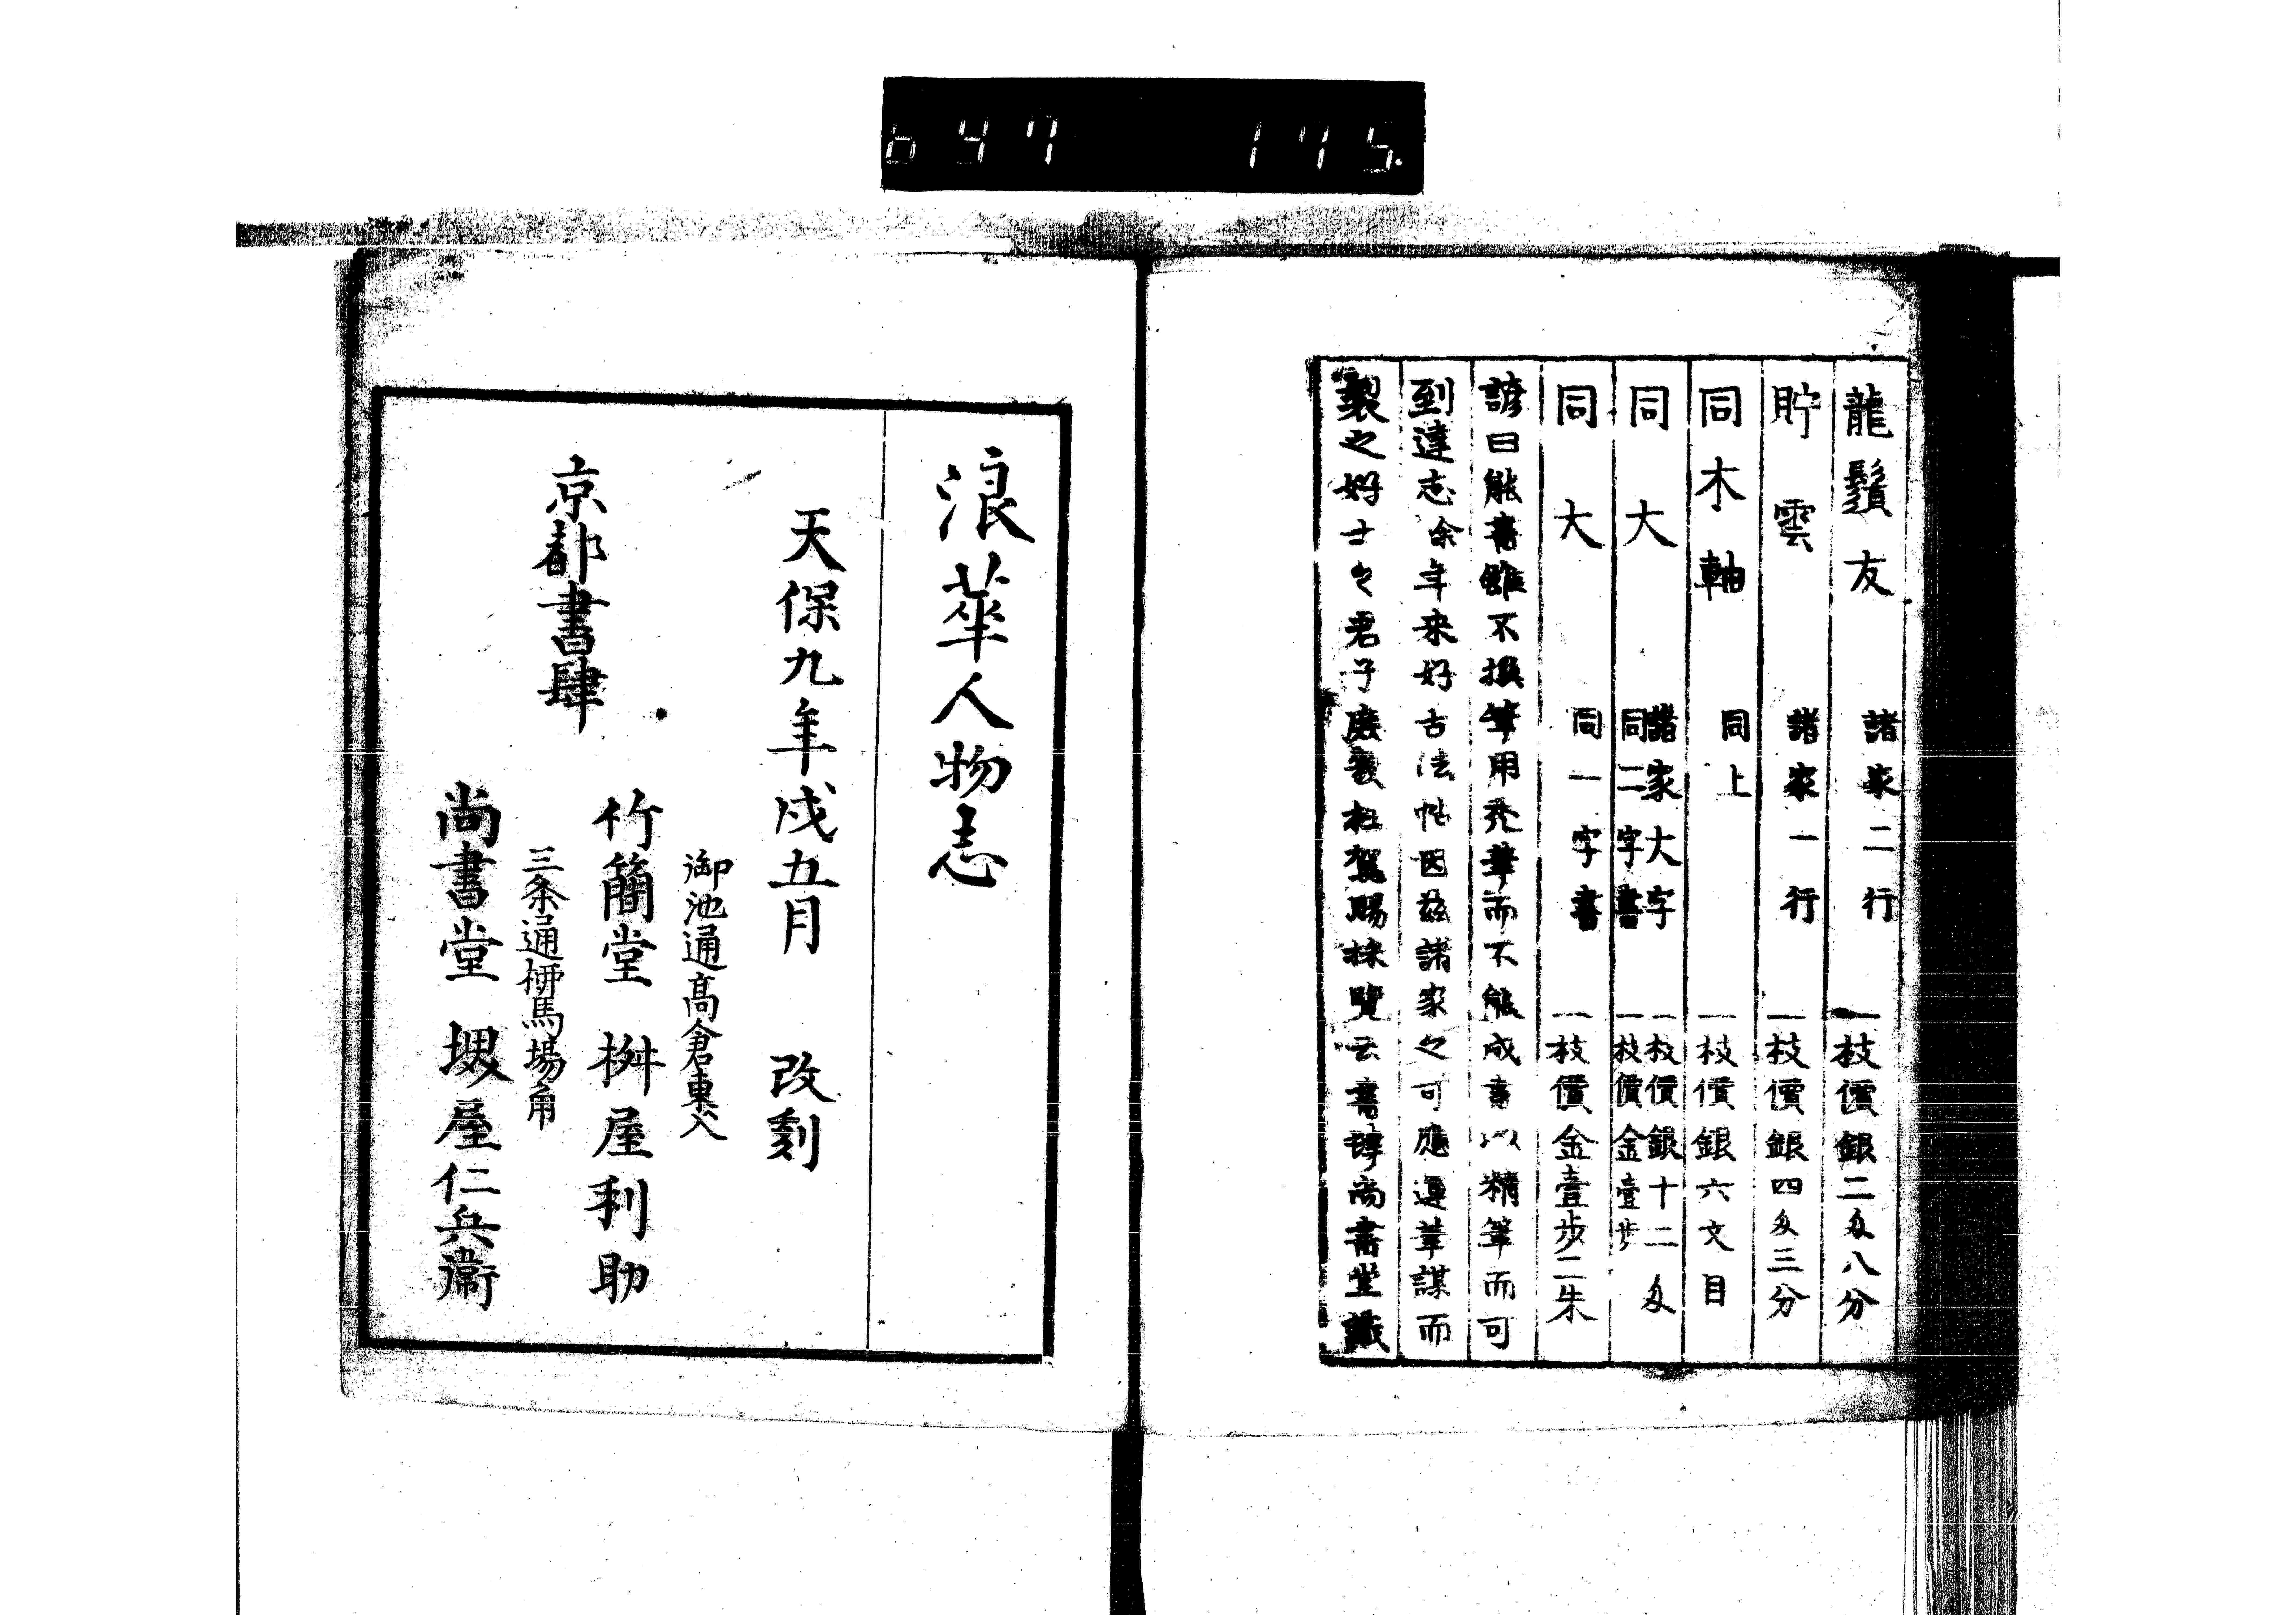 647 175
龍鬚友 諸家二行 一枝價銀二匁八分
貯雲 諸家一行 一枝價銀四匁三分
同木軸 同上 一枝價銀六文目
同大 諸家大字 一枝價銀十二匁
同二字書 一枝價金壹步
同大 同一字書 一枝價金壹步二朱
諺曰能書雖不撰筆用禿筆而不能成書以精筆而可
到達志余年来好古法帖因茲諸家之可應運筆謀而
製之好士之君子庶幾枉駕賜採覧云書肆尚書堂識
浪華人物志
天保九年戌五月 改刻
御池通高倉東入
京都書肆 竹簡堂 桝屋利助
三条通柳馬場角
尚書堂 堺屋仁兵衛